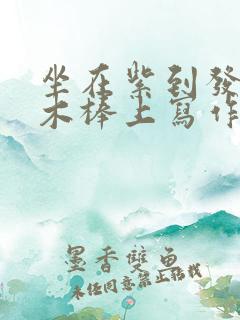 坐在紫到發
木棒上寫作
墨香雙魚
未经同意禁止转载